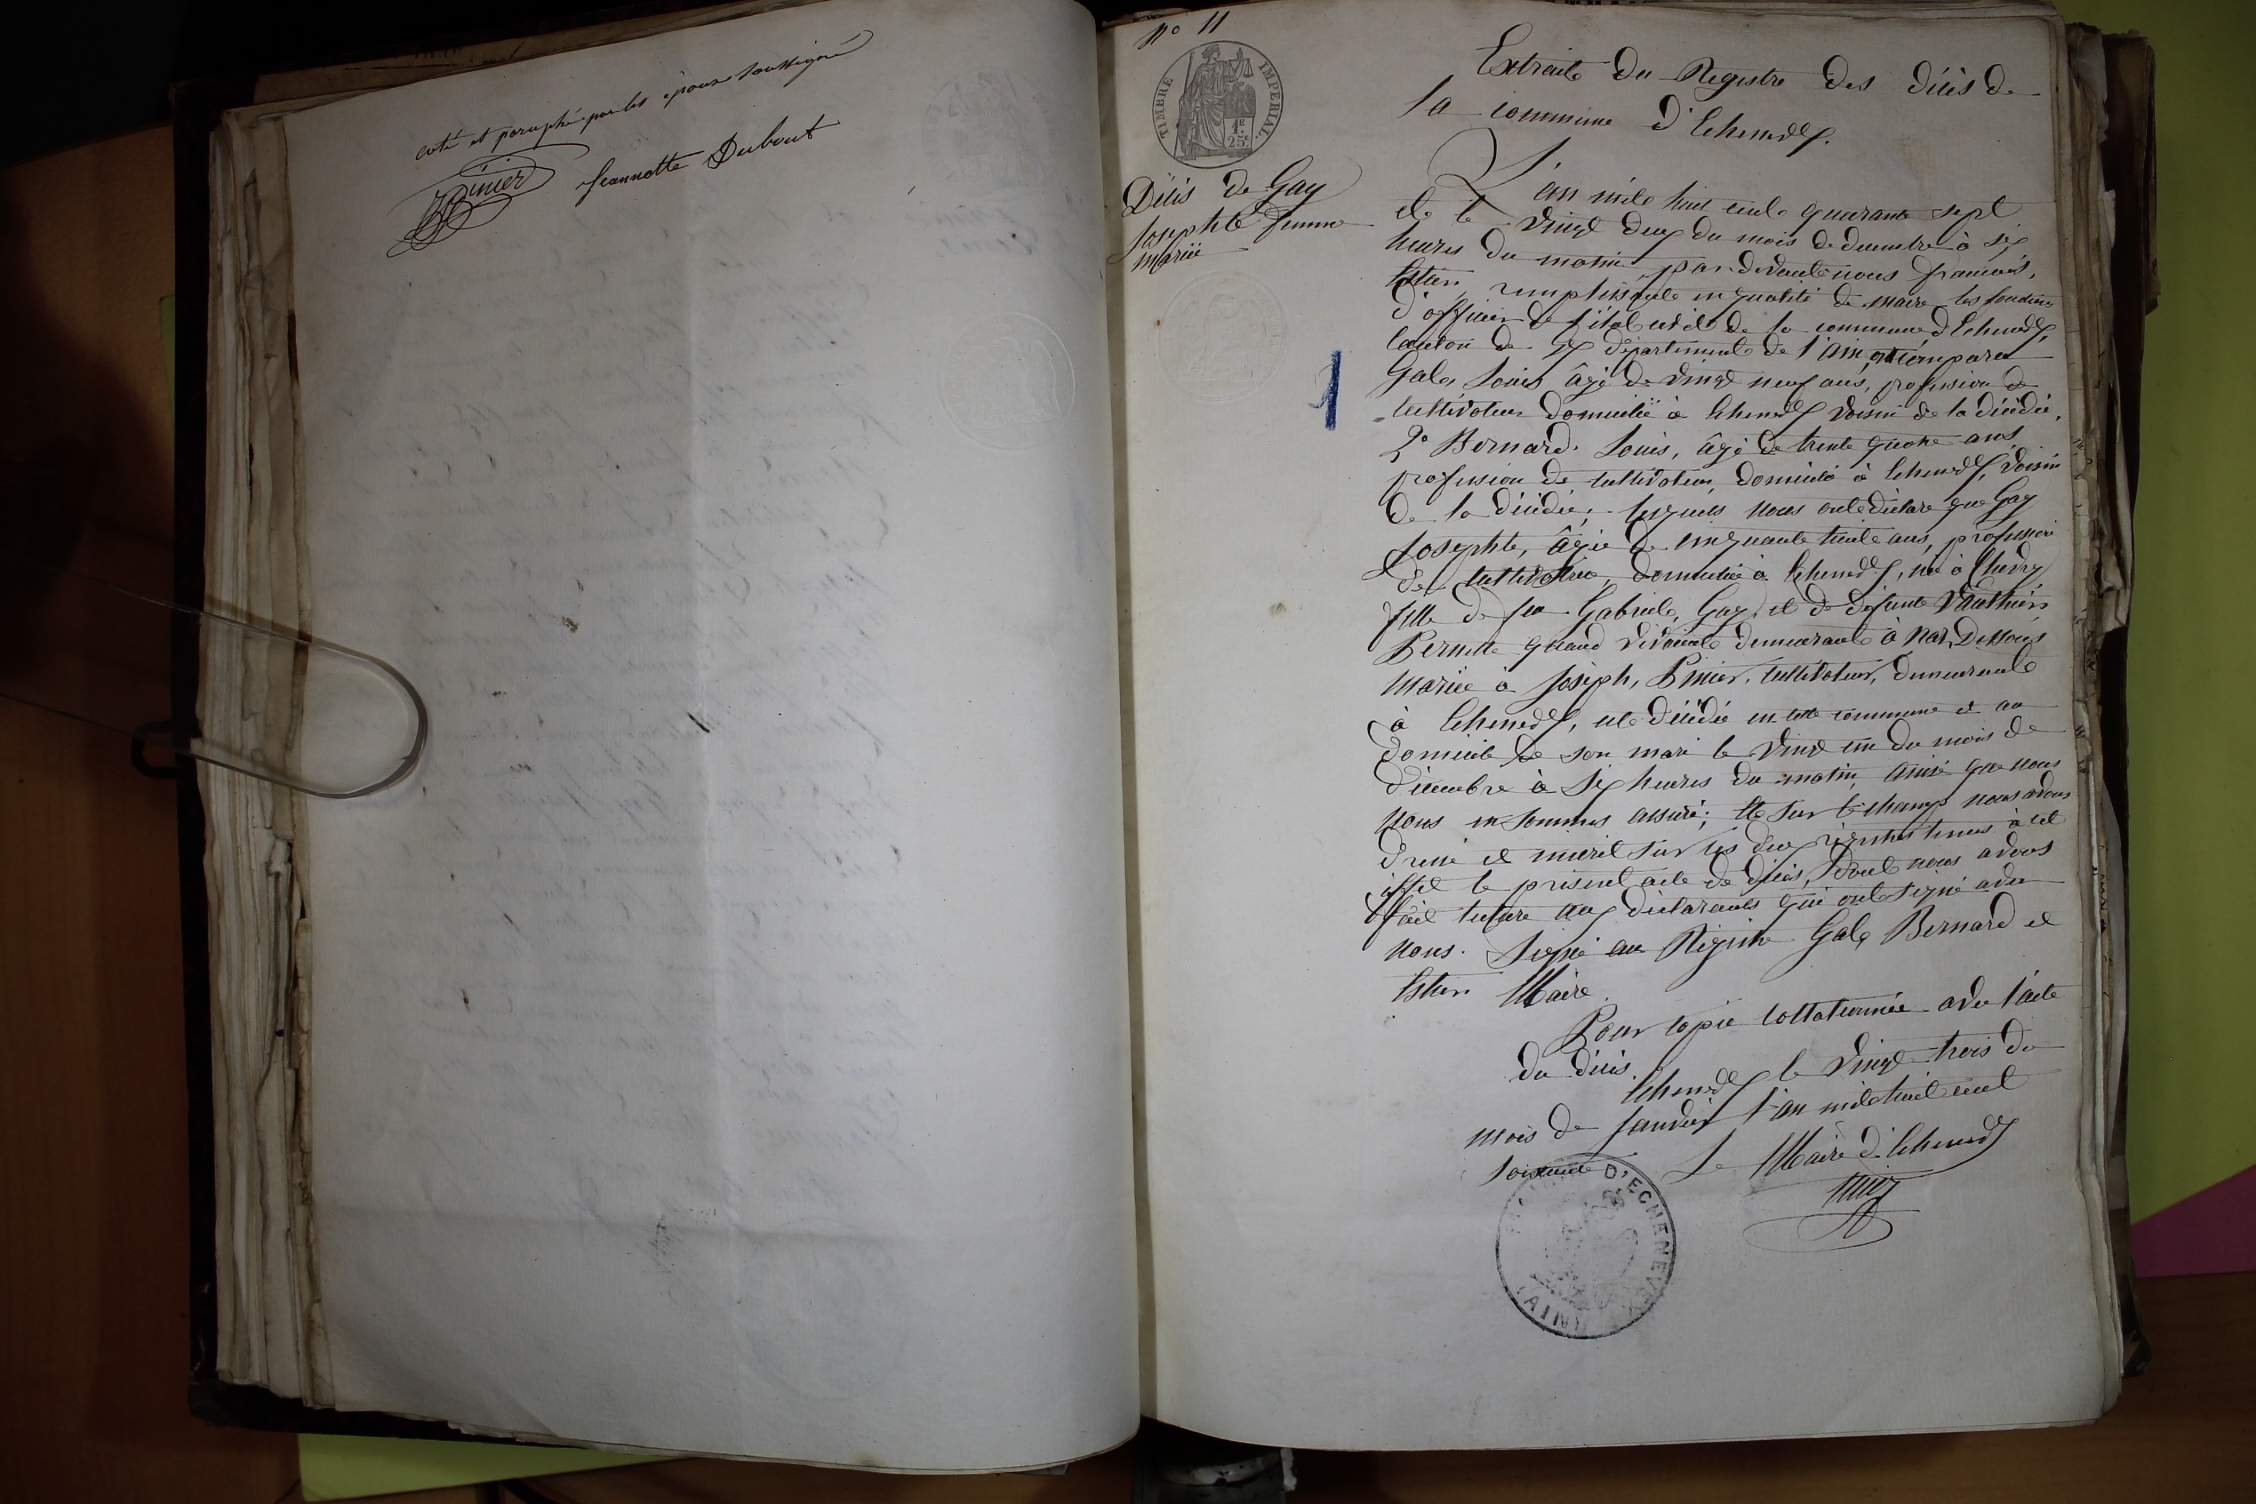 coté et paraphé par les époux soussignés
Pinier Jeannette Dubout
No 11
TIMBRE IMPERIAL
1F
25c
Décès de Gay
Josephte femme
Mariée
Extrait du Registre des décès de
la commune d'Echenevex.
L'an mile huit cent quarante sept
et le vingt deux du mois de decembre à six
heures du matin, par devant nous françois,
remplissant en qualité de maire les fonctions
d'officier de l'état civil de la commune d'Echenevex,
Canton de département de l'ain, ont comparu
Louis âgé de vingt neuf ans, profession de
cultivateur domicilié à Echenevex voisin de la décédée,
2o Bernard Louis, âgé de trente quatre ans
profession de cultivateur, domicilié à Echenevex, voisin
de la décédée, lesquels nous ont déclaré que Gay
Josephte, âgée de cinquante huit ans, profession
de cultivatrice, domiciliée à Echenevex, née à Chevry
fille de feu Gabriel, Gay, et de défunte
Pernette quand vivait demeurante à
Mariée à Joseph, Pinier, cultivateur, demeurant
à Echenevex, est décédée en cette commune et au
domicile de son mari le vingt un du mois de
décembre à six heures du matin, ainsi que nous
nous en sommes assuré; et sur le champ nous avons
dressé et inscrit sur les deux régistres tenus à cet
effet le présent acte de décès, dont nous avons
fait lecture aux déclarants qui ont signé avec
nous. Signé au Régistre Bernard et
Maire.
Pour copie collationnée avec l'acte
du décès.
Echenevex le vingt trois du
mois de Janvier l'an mil huit cent
soixante
Le Maire d'Echenevex
D'ECHENEVEX
(AIN)